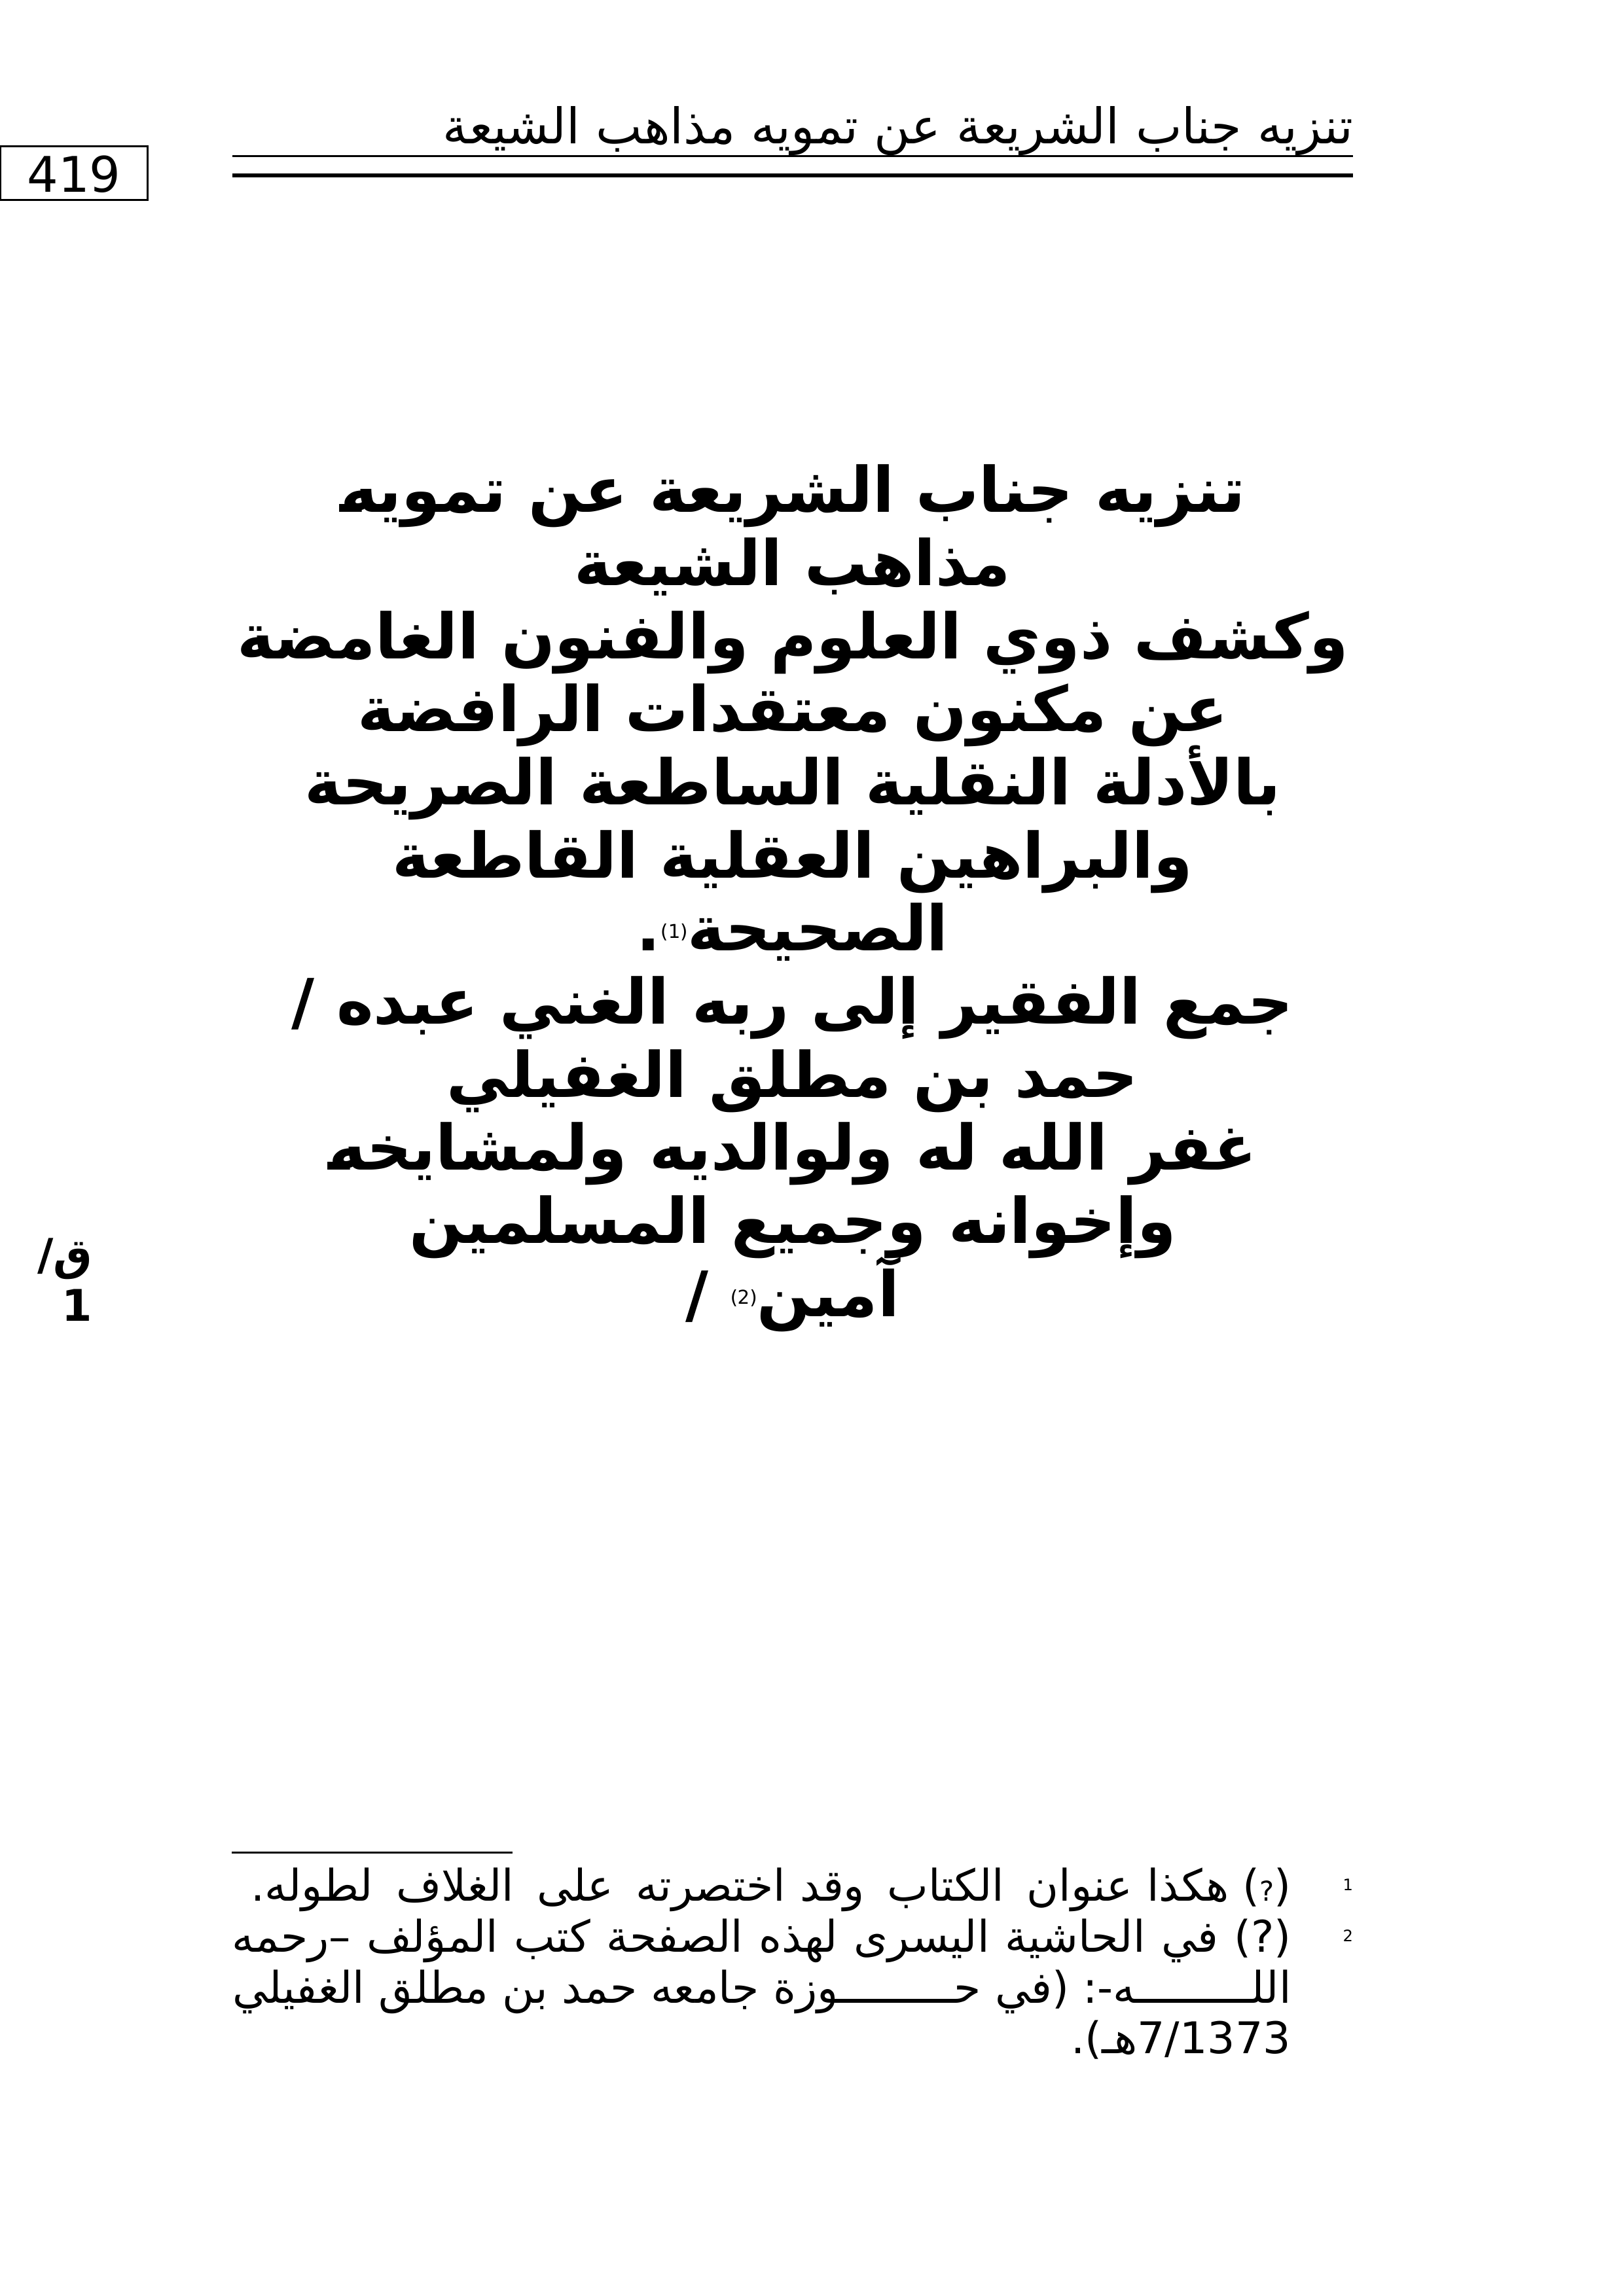 تنزيه جناب الشريعة عن تمويه مذاهب الشيعة
419
تنزيه جناب الشريعة عن تمويه
مذاهب الشيعة
وكشف ذوي العلوم والفنون الغامضة
عن مكنون معتقدات الرافضة
بالأدلة النقلية الساطعة الصريحة
والبراهين العقلية القاطعة
الصحيحة(1).
جمع الفقير إلى ربه الغني عبده /
حمد بن مطلق الغفيلي
غفر الله له ولوالديه ولمشايخه
وإخوانه وجميع المسلمين
آمين(2) /
ق/
1
1 (?) هكذا عنوان الكتاب وقد اختصرته على الغلاف لطوله.
2 (?) في الحاشية اليسرى لهذه الصفحة كتب المؤلف –رحمه
اللـــــــــه-: (في حــــــــــوزة جامعه حمد بن مطلق الغفيلي
7/1373هـ).